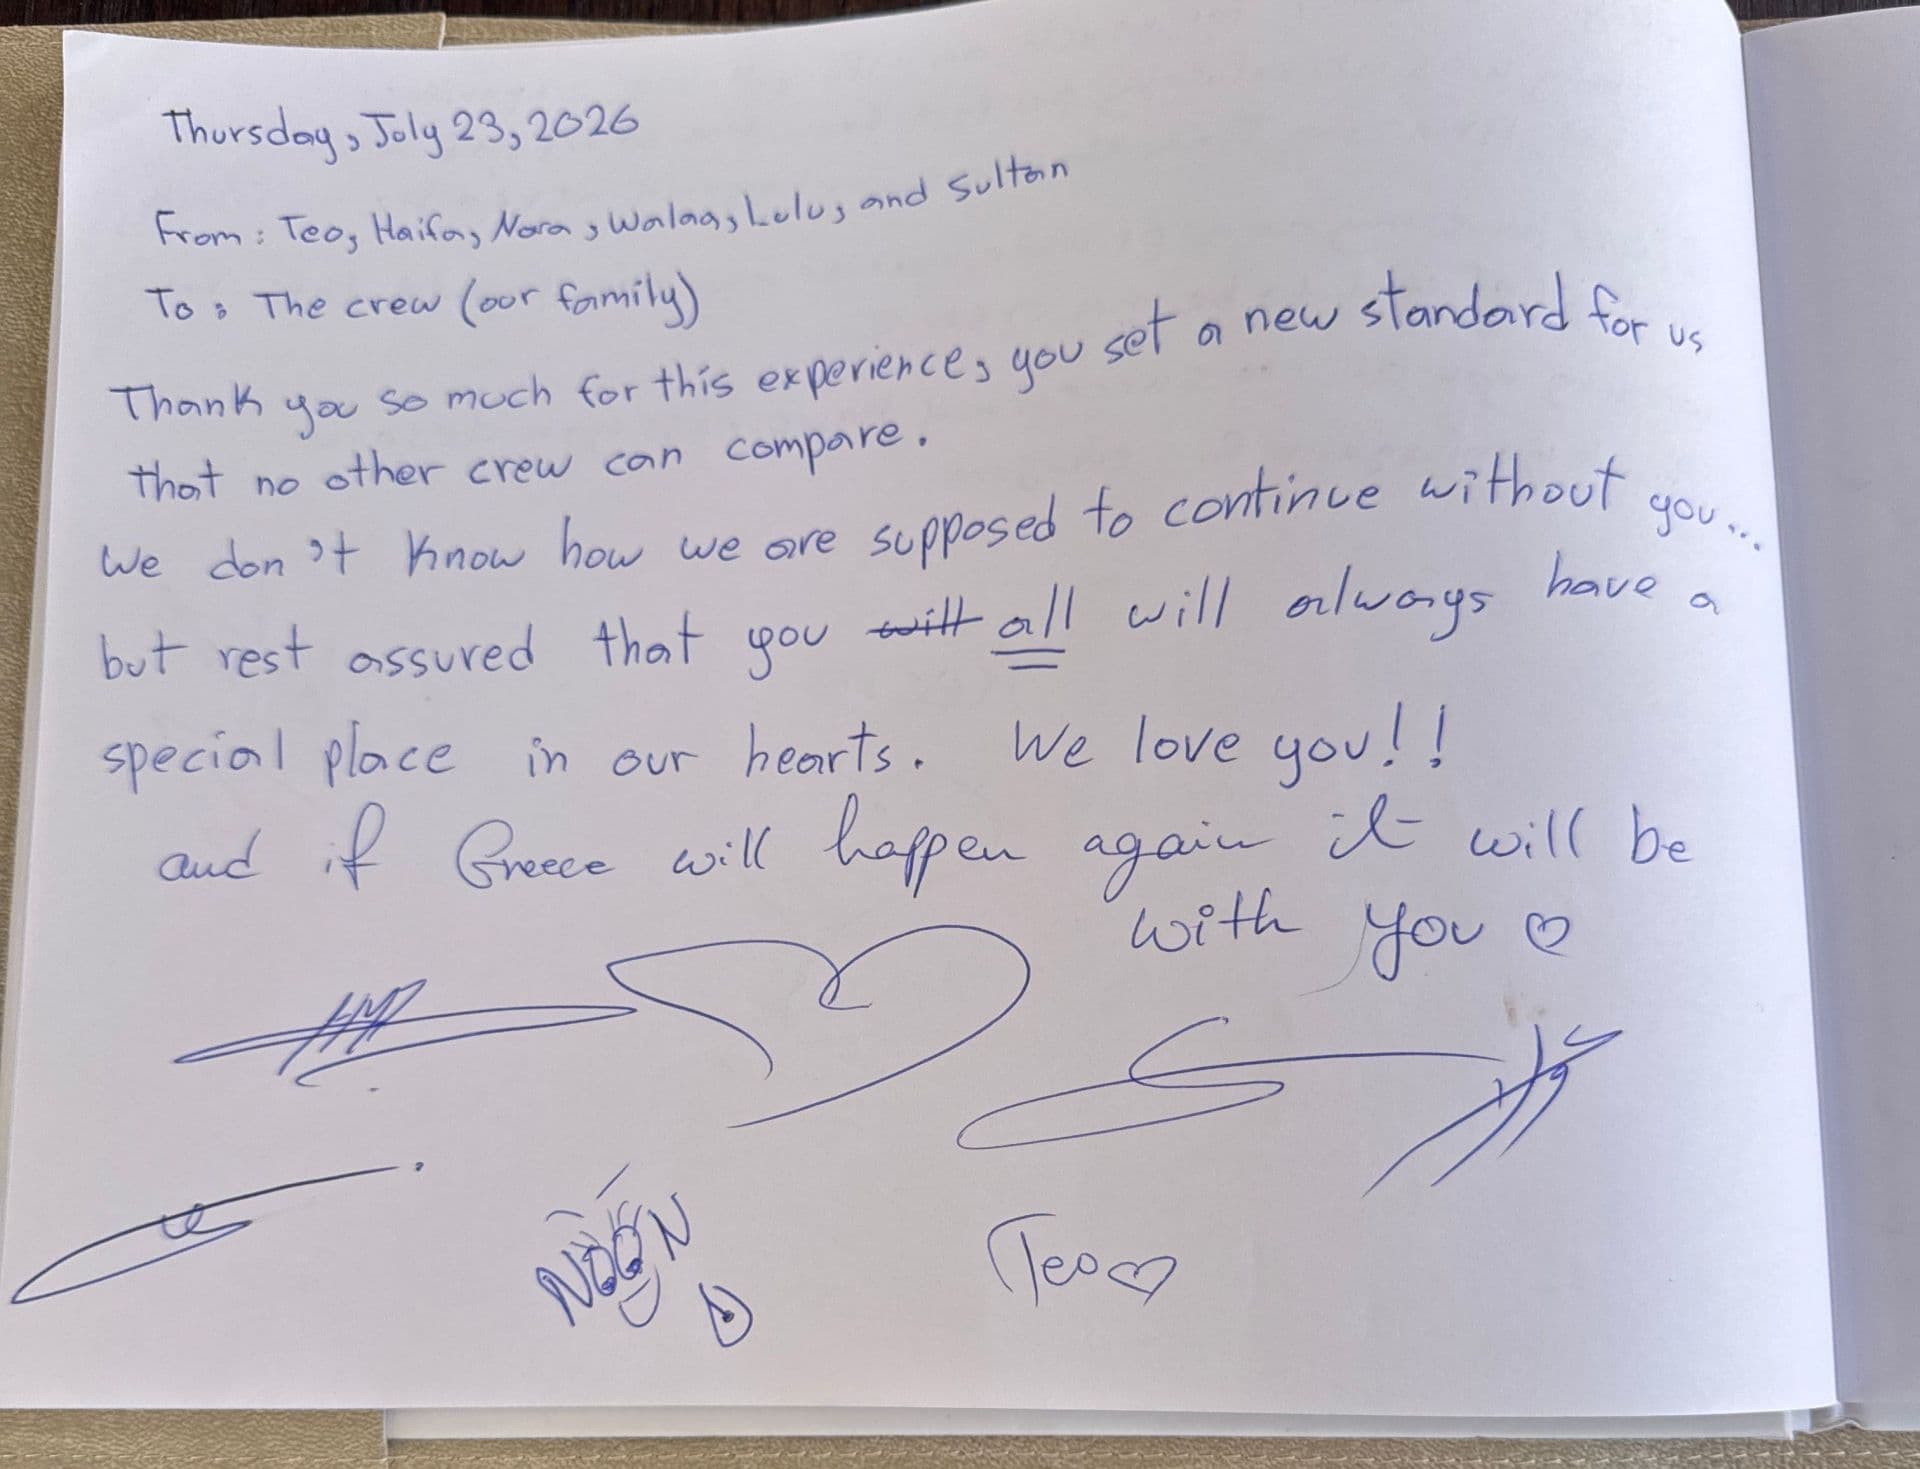 Thursday, July 23, 2026
From: Teo, Haifa, Nora, Walaa, Lulu, and Sultan
To: The crew (our family)
Thank you so much for this experience, you set a new standard for us
that no other crew can compare.
We don't know how we are supposed to continue without you...
but rest assured that you will all will always have a
special place in our hearts. We love you!!
and if Greece will happen again it will be
with you ♡
Teo♡